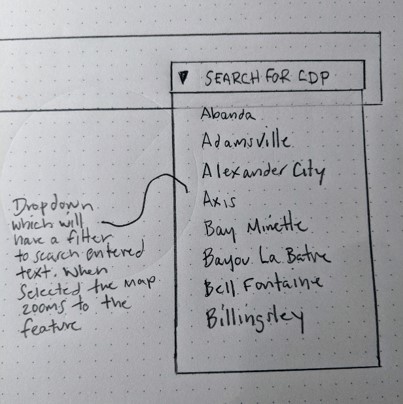 ▼ SEARCH FOR CDP
Abanda
Adamsville
Alexander City
Axis
Bay Minette
Bayou La Batre
Bell Fontaine
Billingsley
Dropdown
which will
have a filter
to search entered
text. When
Selected the map
zooms to the
feature